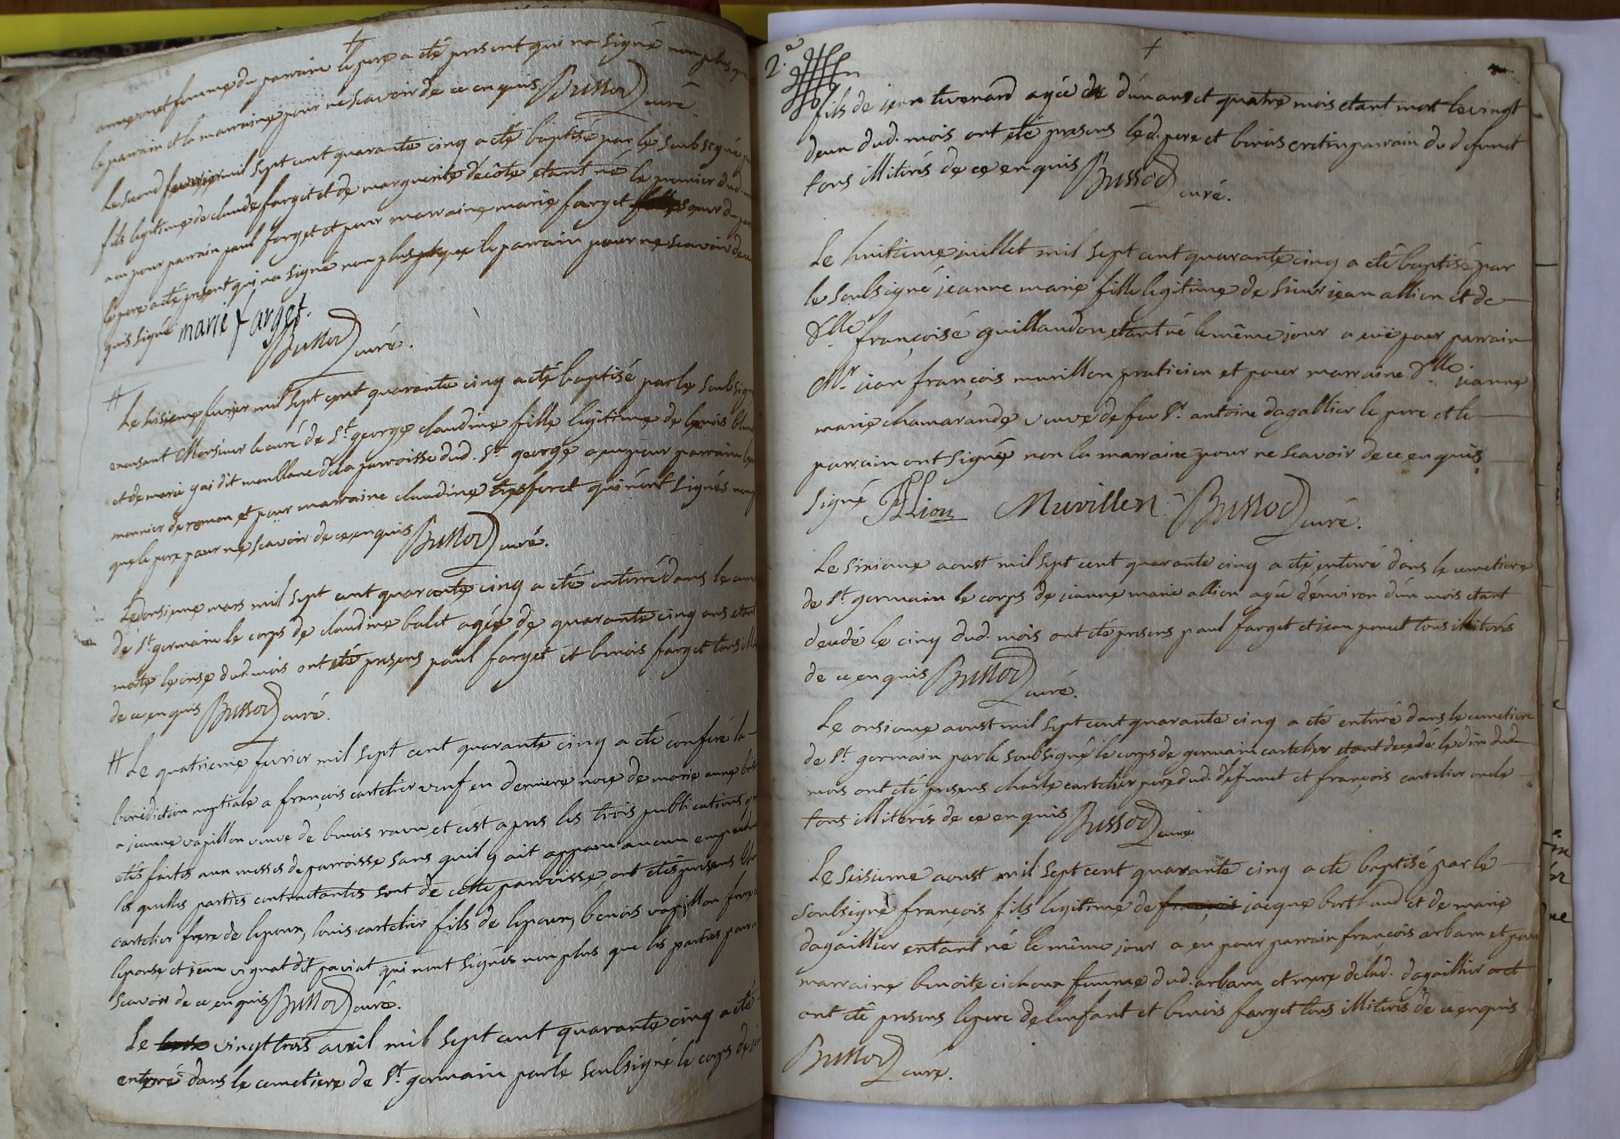 femme du parrain le pere a été present qui na signé non plus que
le parrain et la marraine pour ne scavoir de ce enquis Bussod curé
Le second feuvrier mil sept cent quarante cinq a été baptisé par le soubsigné
fils legitime de claude farget et de marguerite decôte etant né le premier dud.
a eu pour parrain paul farget et pour marraine marie farget soeur du
le pere a été present qui na signé non plus que le parrain pour ne scavoir de ce
quis signé marie farget.
Bussod curé.
Le sisieme fuvrier mil sept cent quarante cinq a été baptisé par le soubsigné
en absant Monsieur le curé de St. george claudine fille legitime de benois
et de marie gai dit monblanc de la parroisse dud. St. george a eu pour parrain
monnier de romon et pour marraine claudine qui n'ont signés non
que le pere pour ne scavoir de ce enquis Bussod curé.
Le onsieme mars mil sept cent quarante cinq a été enterré dans le
de St. germain le corps de claudine balet agée de quarante cinq ans etant
morte le onse dud. mois ont été presens paul farget et benois farget tous
de ce enquis Bussod curé.
Le quatrieme fuvrier mil sept cent quarante cinq a été conferé la
benediction nuptiale a francois cartelier veuf en derniere noce de marie anne
a jeanne vapillon veuve de benois ravu et cest apres les trois publications
etés faites aux messes de parroisse sans quil y ait apparu aucun
les quelles parties contractantes sont de cette parroisse, ont etés presens
cartelier frere de lepoux, louis cartelier fils de lepoux, benois vapillon frere
lepouse et jean vignat dit paviat, qui nont signés non plus que les parties pour
scavoir de ce enquis Bussod curé.
Le vingt trois avril mil sept cent quarante cinq a été
enterré dans le cemetiere de St. germain par le soubsigné le corps de
2.e
fils de jean tivenard agée de d'un an et quatre mois etant mort le vingt
deux dud. mois ont été presens led. pere et benois cretin parrain du defunct
tous illiterés de ce enquis Bussod curé.
Le huitieme juillet mil sept cent quarante cinq a été baptisé par
le soubsigné jeanne marie fille legitime de sieur jean allion et de
Dlle françoise guillaudon etant né le même jour a eu pour parrain
Mr. jean françois muvillon praticien et pour marraine Dlle jeanne
marie chamarande veuve de feu Sr. antoine dagallier le pere et le
parrain ont signé non la marraine pour ne scavoir de ce enquis
signé Allion Muvillon Bussod curé.
Le sixieme aoust mil sept cent quarante cinq a été enterré dans le cemetiere
de St. germain le corps de jeanne marie allion agée d'environ d'un mois etant
decedé le cinq dud. mois ont été presens paul farget et jean tous illiterés
de ce enquis Bussod curé.
Le onsieme aoust mil sept cent quarante cinq a été enterré dans le cemetiere
de St. germain par le soubsigné le corps de germain cartelier etant decedé le dix dud.
mois ont été presens charle cartelier pere dud. defunct et françois cartelier oncle
tous illiterés de ce enquis Bussod curé
Le seisieme aoust mil sept cent quarante cinq a été baptisé par le
soubsigné françois fils legitime de françois jacque berthaud et de marie
dagaillier entant né le même jour a eu pour parrain françois arbam et pour
marraine benoite cichoux femme dud. arbam et mere de lad. dagaillier
ont été presens le pere de l'enfant et benois farget tous illiterés de ce enquis
Bussod curé.